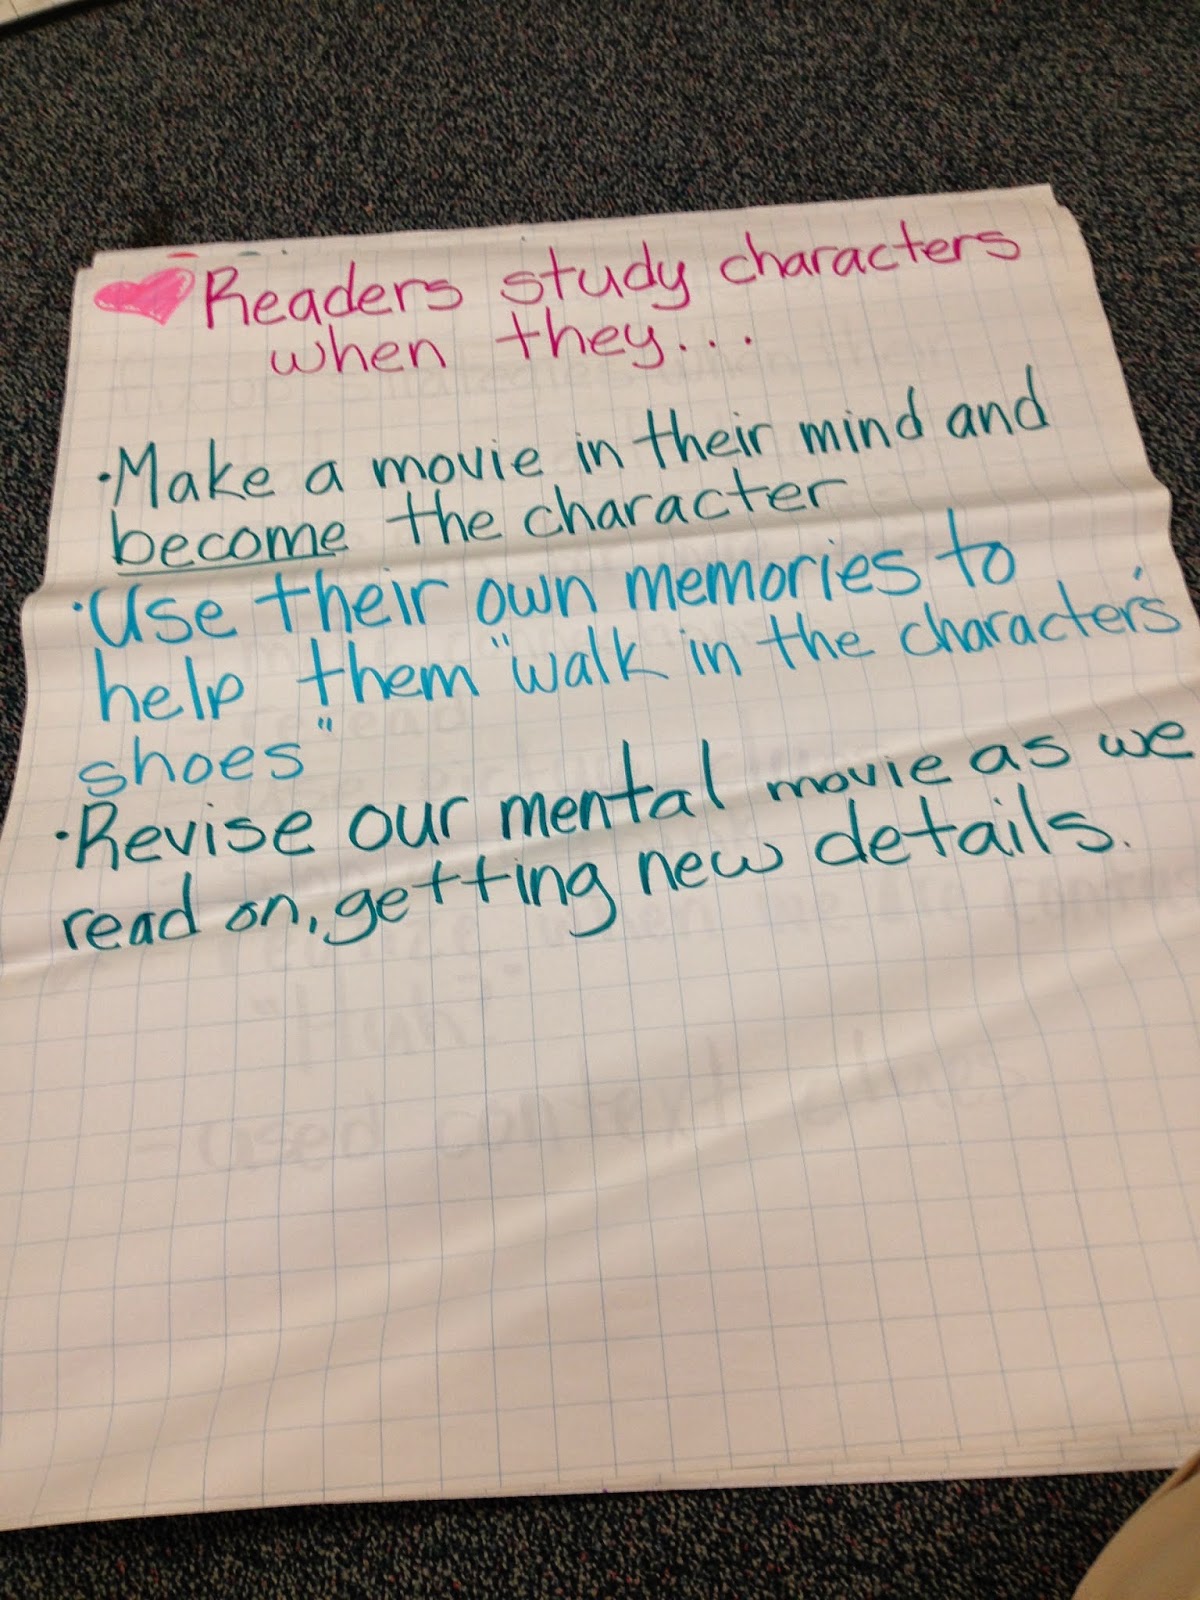 Readers study characters
when they...
·Make a movie in their mind and
become the character
·Use their own memories to
help them "walk in the character's
shoes"
·Revise our mental movie as we
read on, getting new details.